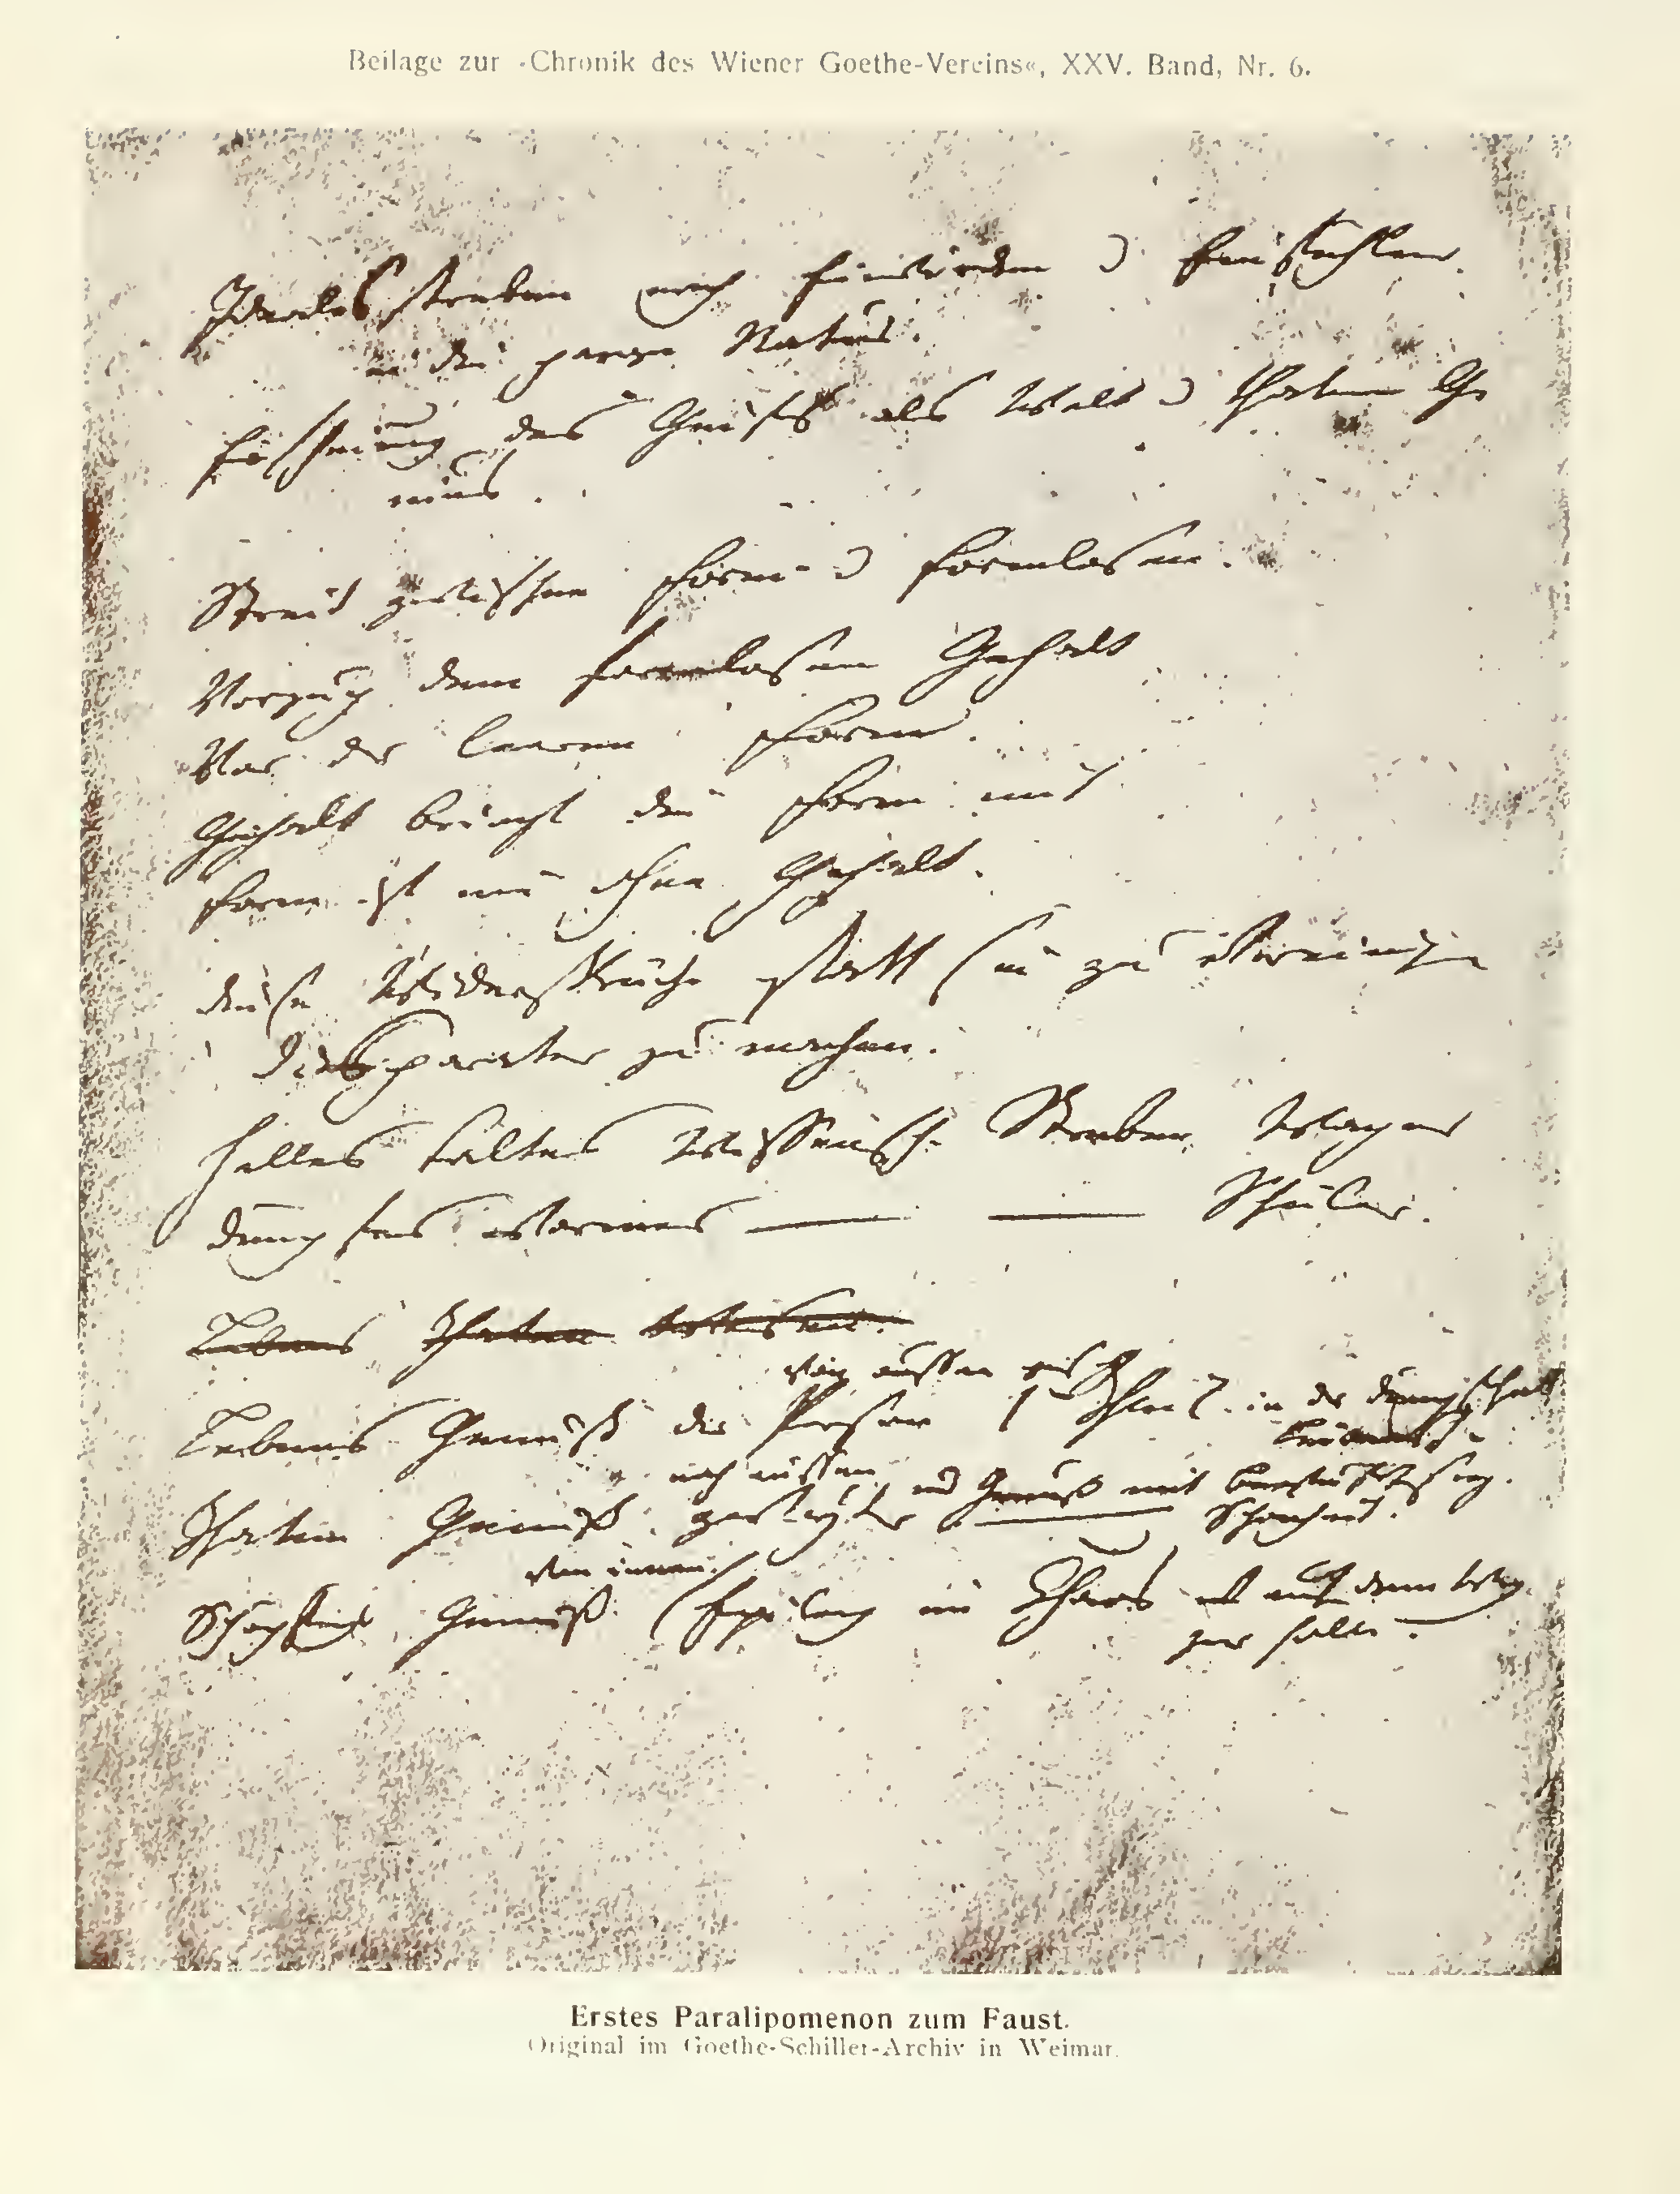 Beilage zur »Chronik des Wiener Goethe-Vereins«, XXV. Band, Nr. 6.
Ideales Streben nach Einwürcken u Einfühlen
in die ganze Natur.
Erscheinung des Geists als Welt u Thaten Ge
nius.
Streit zwischen Form u Formlosem.
Vorzug dem formlosen Gehalt
Vor der leeren Form.
Gehalt bringt die Form mit
Form ist nie ohne Gehalt.
Diese Widersprüche statt sie zu vereinigen
disparater zu machen.
Helles kaltes Wissensch. Streben Wagner
Dumpfes warmes — — Schüler.
Lebens Thaten Wesen.
von aussen
Lebens Genuß der Person in der Dumpfheit
Leidensch.
nach aussen und Genuß mit Bewußtseyn.
Thaten Genuß zweyter Schönheit.
von innen
Schöpfungs Genuß Epilog im Chaos auf dem Weg
zur Hölle.
Erstes Paralipomenon zum Faust.
Original im Goethe-Schiller-Archiv in Weimar.